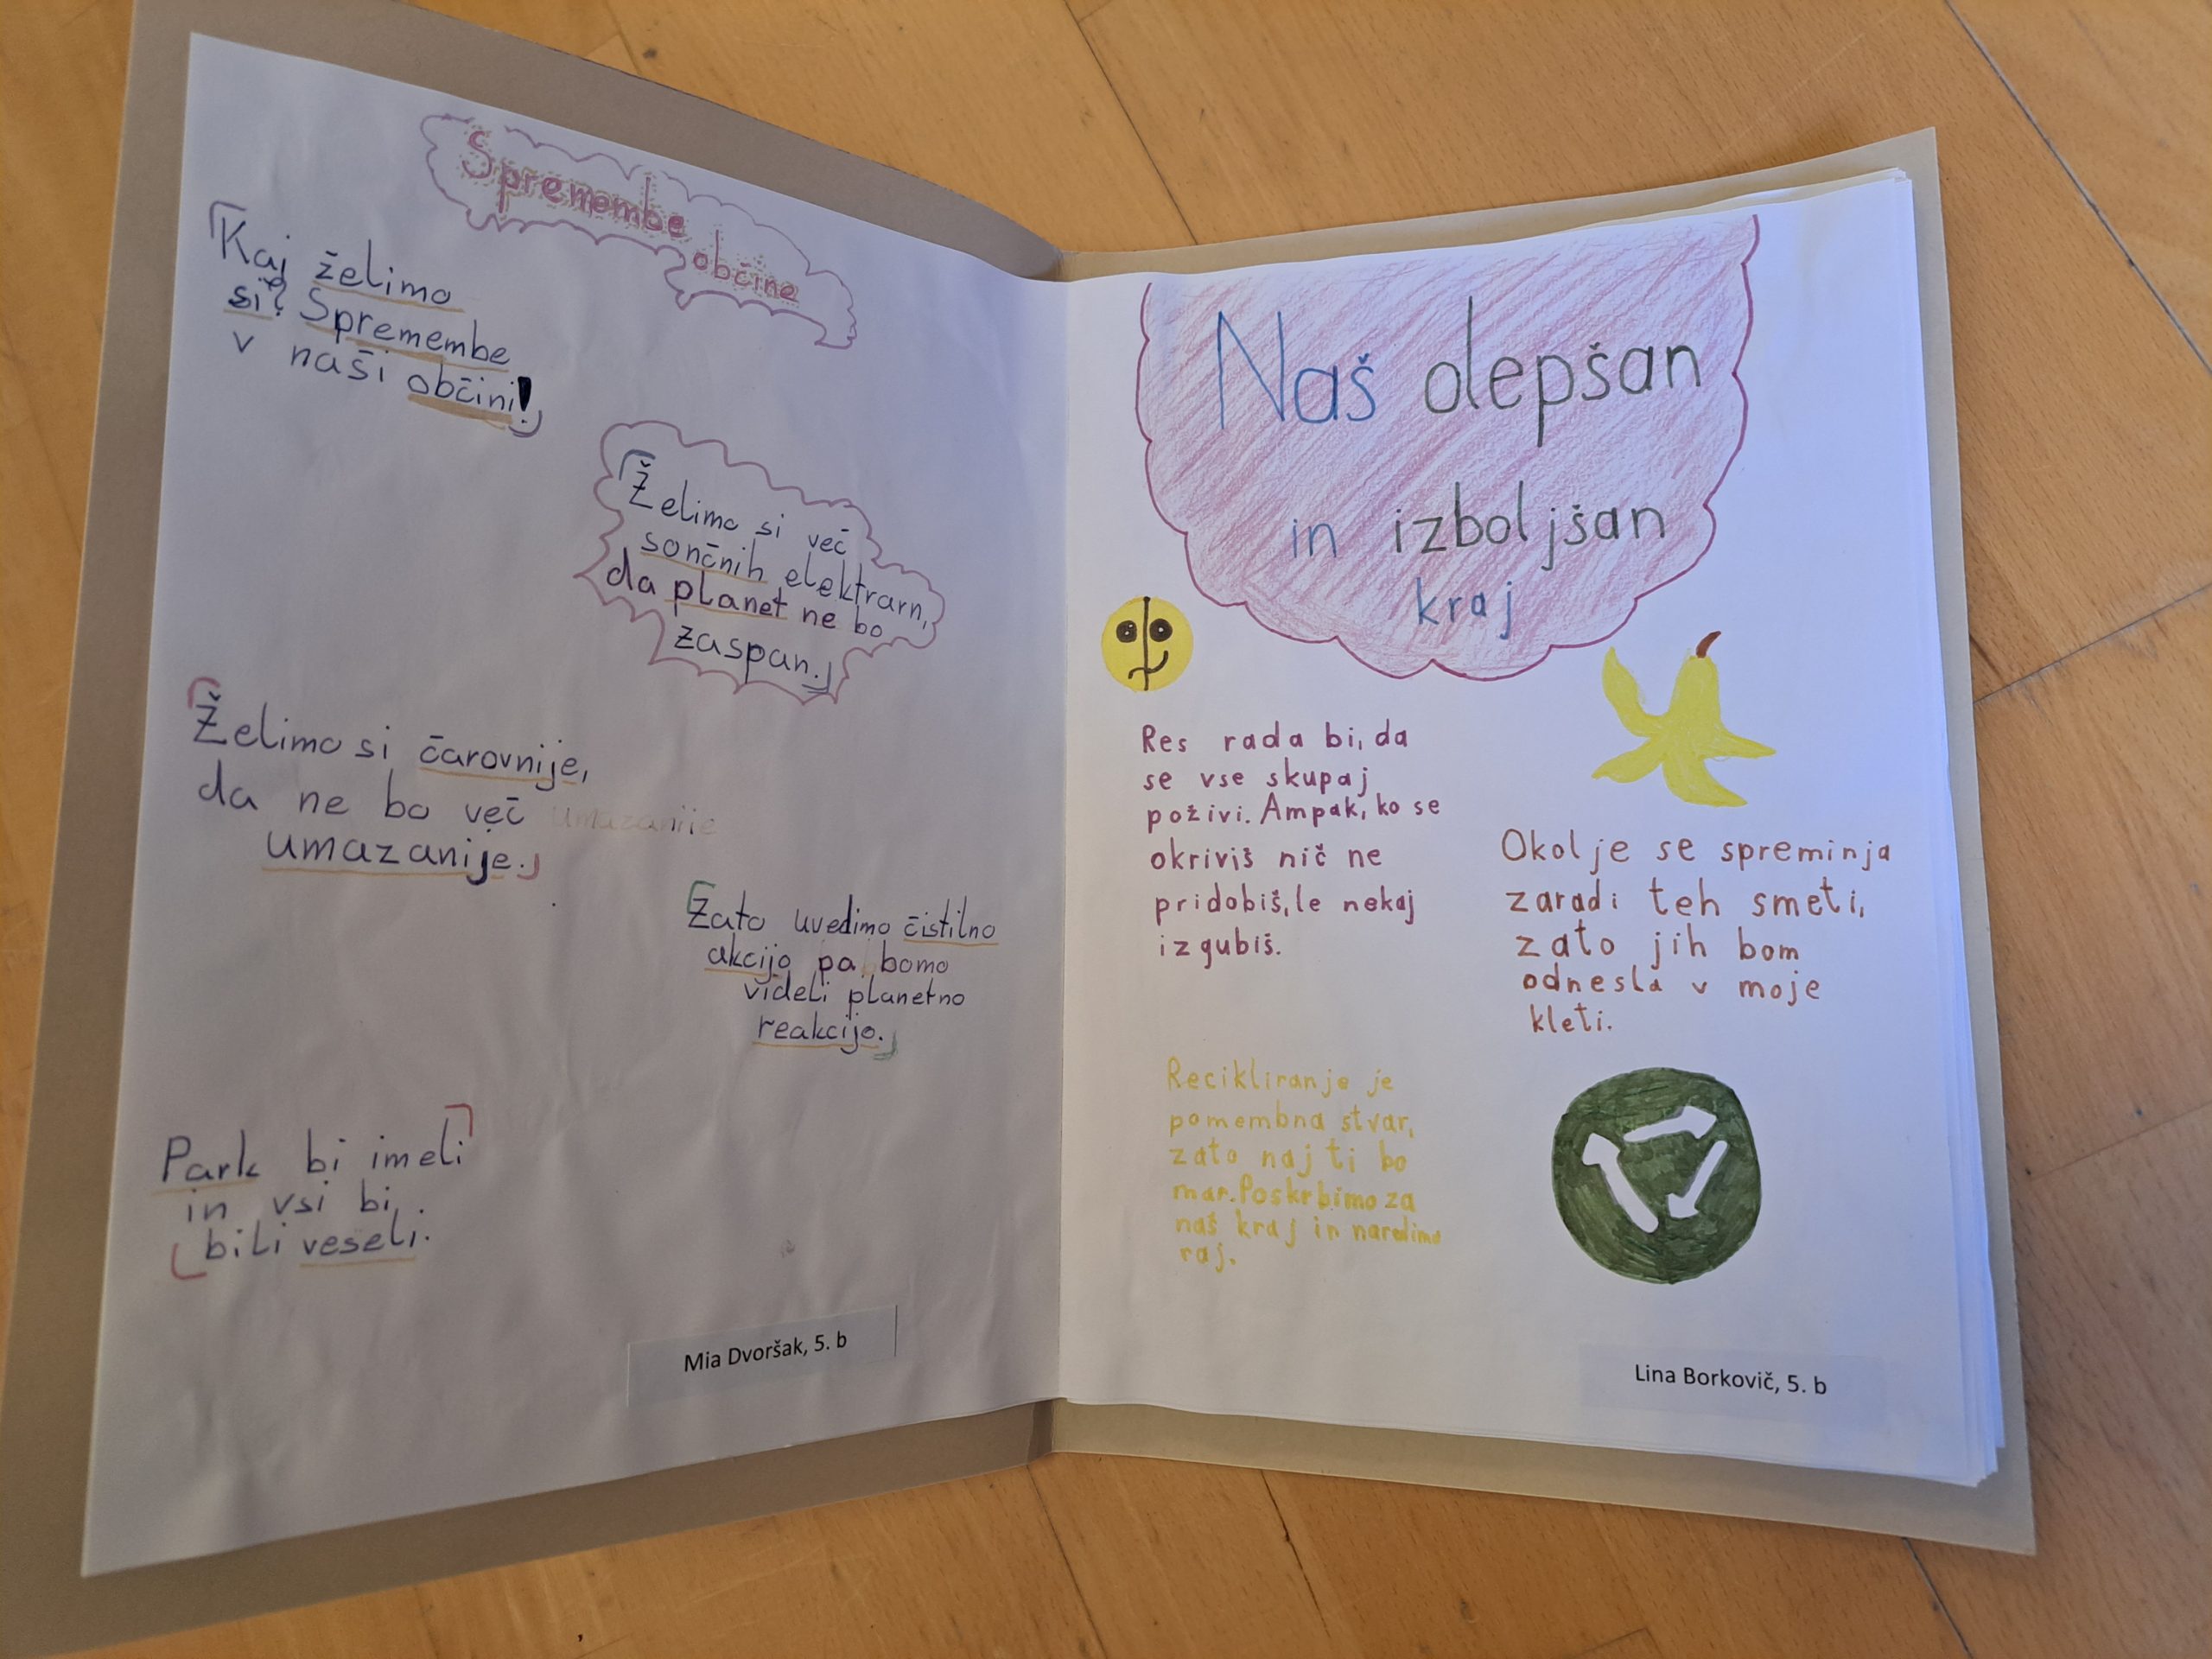 Spremembe
občine
Kaj želimo
si? Spremembe
v naši občini!
Želimo si več
sončnih elektrarn,
da planet ne bo
zaspan.
Želimo si čarovnije,
da ne bo več umazanije
umazanije.
Zato uvedimo čistilno
akcijo pa bomo
videli planetno
reakcijo.
Park bi imeli
in vsi bi
bili veseli.
Mia Dvoršak, 5. b
Naš olepšan
in izboljšan
kraj
Res rada bi, da
se vse skupaj
poživi. Ampak, ko se
okriviš nič ne
pridobiš, le nekaj
izgubiš.
Okolje se spreminja
zaradi teh smeti,
zato jih bom
odnesla v moje
kleti.
Recikliranje je
pomembna stvar,
zato naj ti bo
mar. Poskrbimo za
naš kraj in naredimo
raj.
Lina Borkovič, 5. b